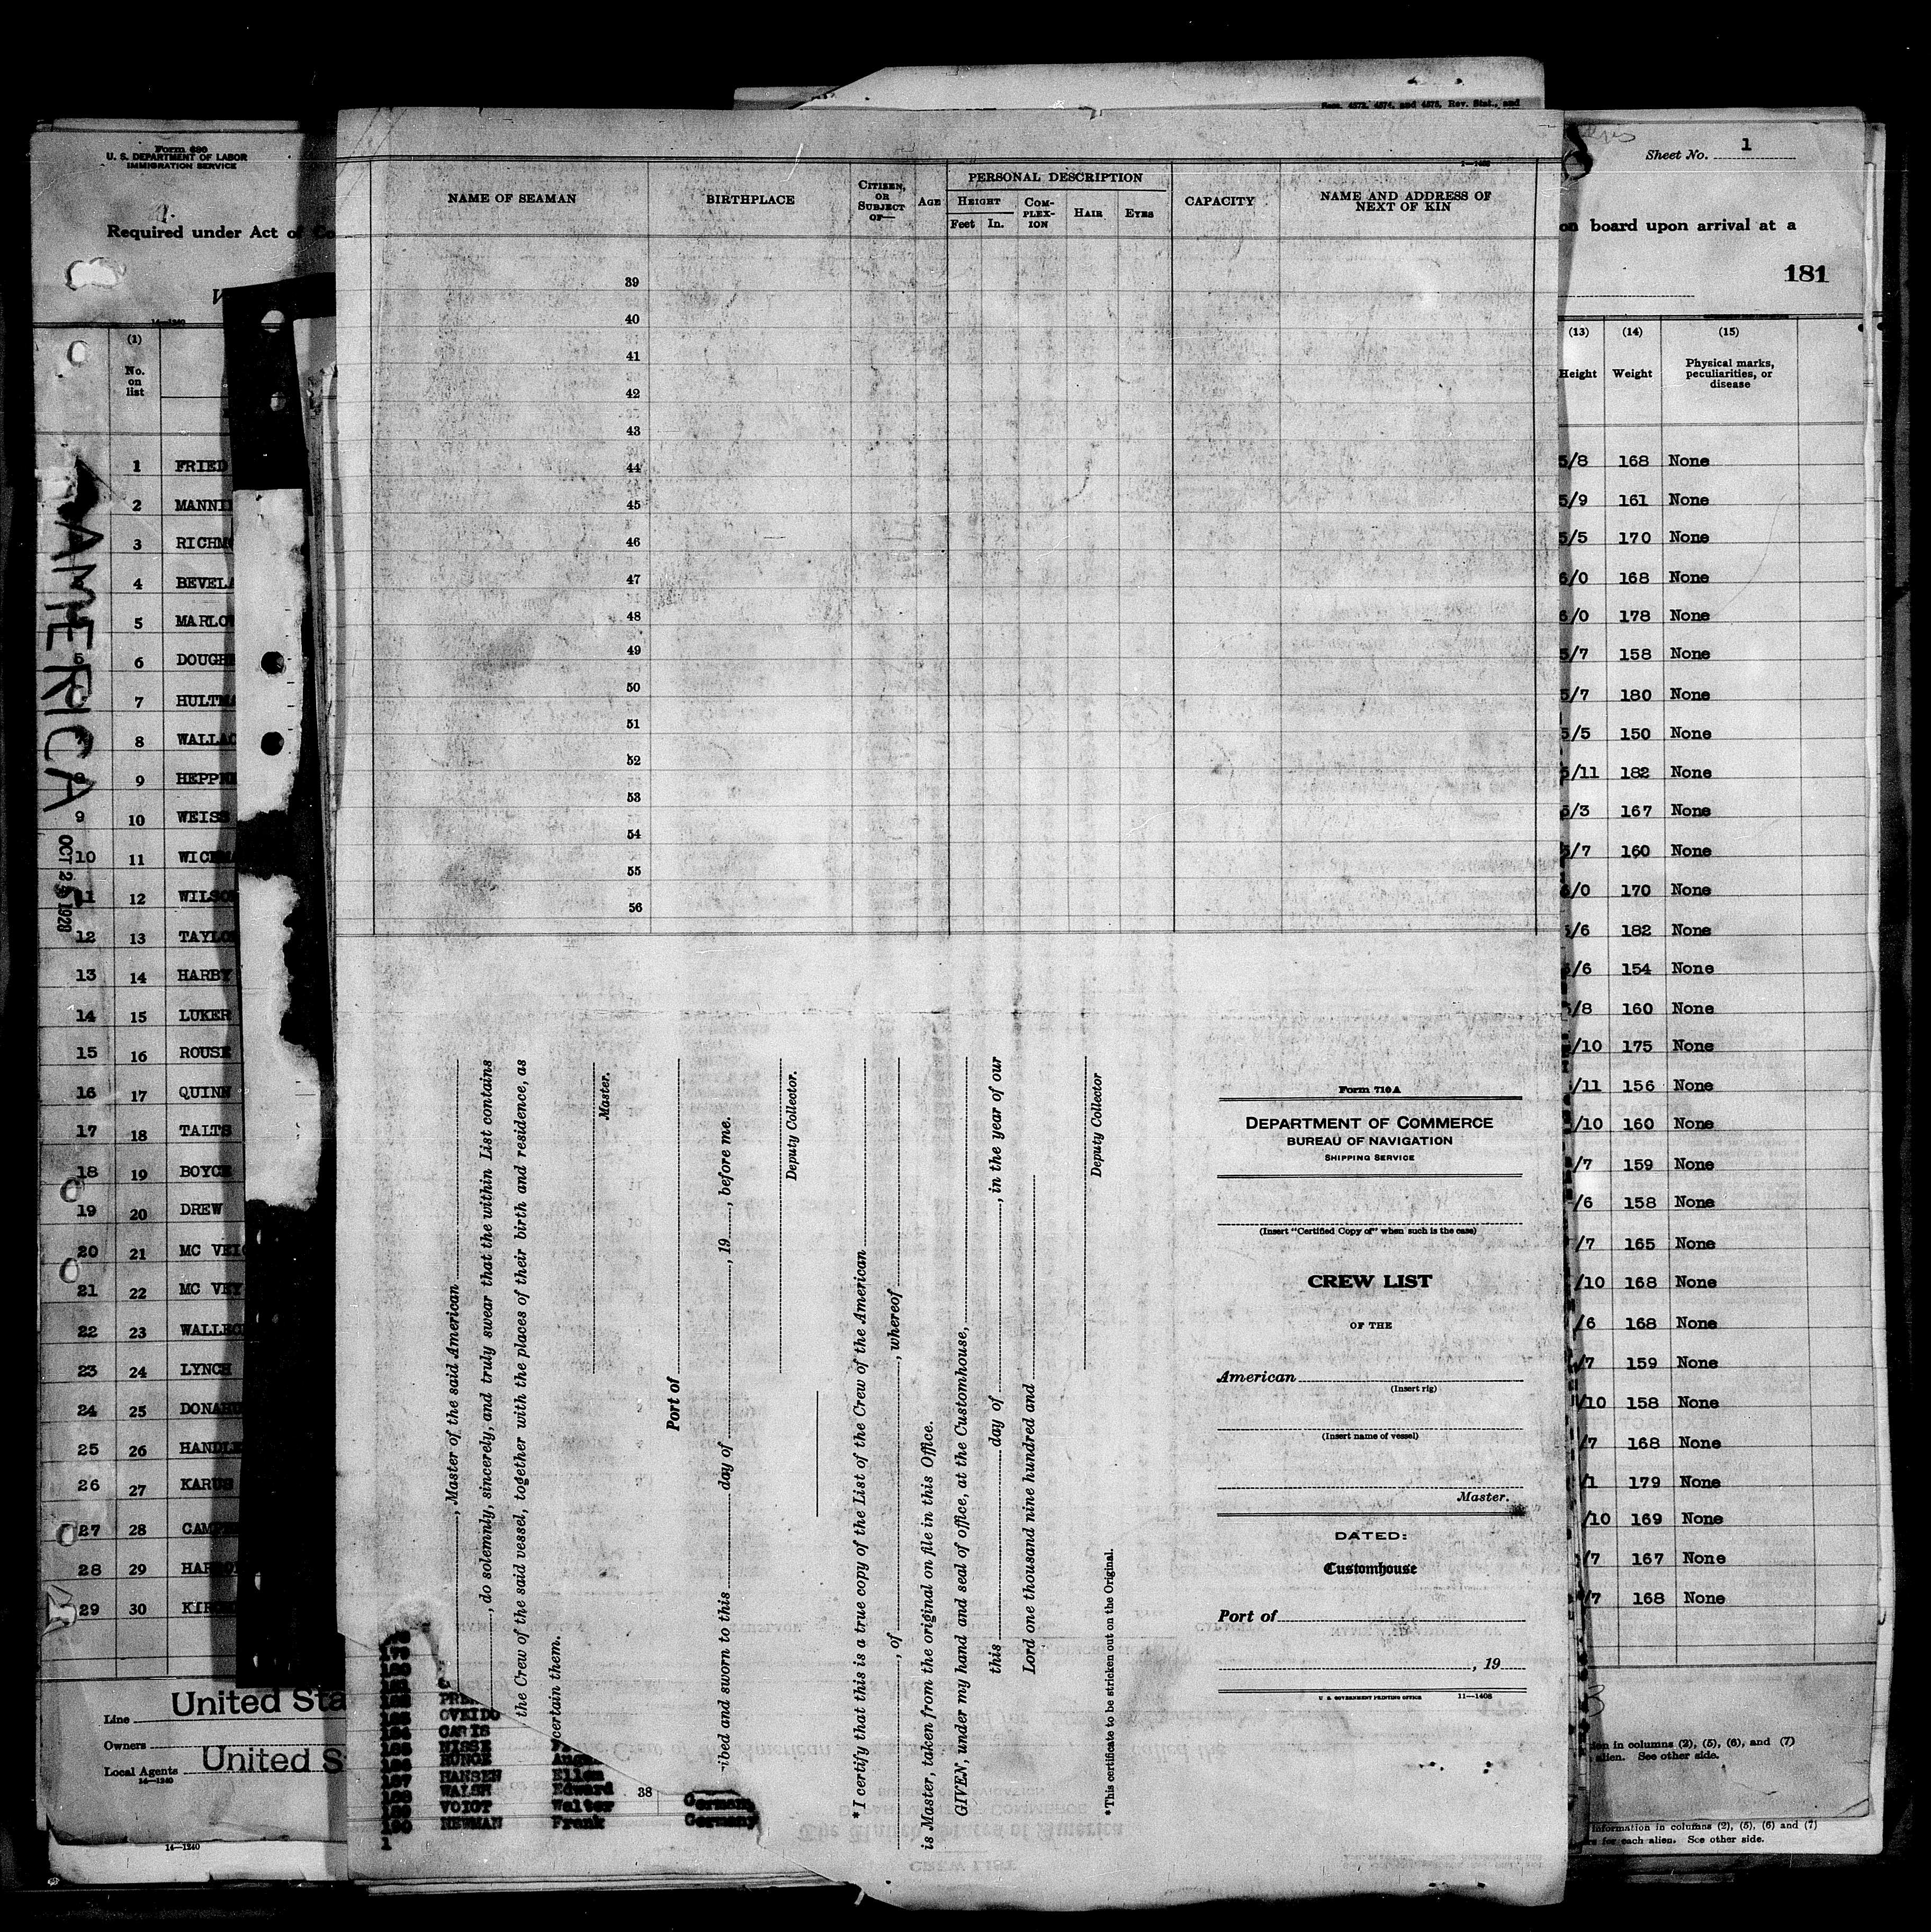 Secs. 4573, 4574, and 4575, Rev. Stat., and
Form 680
U. S. DEPARTMENT OF LABOR
IMMIGRATION SERVICE
Required under Act of Co
14—1240
(1)
No.
on
list
1 FRIED
2 MANNI
3 RICHMO
4 BEVELA
5 MARLOW
5 6 DOUGHE
7 HULTMA
8 WALLAC
9 HEPPN
9 10 WEISS
10 11 WICKMA
11 12 WILSON
12 13 TAYLO
13 14 HARBY
14 15 LUKER
15 16 ROUSE
16 17 QUINN
17 18 TALTS
18 19 BOYCE
19 20 DREW
20 21 MC VEIG
21 22 MC VEY
22 23 WALLEC
23 24 LYNCH
24 25 DONAHU
25 26 HANDLE
26 27 KARUS
27 28 CAMP
28 29 HAR
29 30 KI
AMERICA
OCT 2 1928
Line
United Sta
Owners
Local Agents
United S
14—1240
14—1240
1—1408
NAME OF SEAMAN
BIRTHPLACE
CITIZEN,
OR
SUBJECT
OF—
AGE
PERSONAL DESCRIPTION
HEIGHT
Feet In.
COM-
PLEX-
ION
HAIR
EYES
CAPACITY
NAME AND ADDRESS OF
NEXT OF KIN
39
40
41
42
43
44
45
46
47
48
49
50
51
52
53
54
55
56
, Master of the said American
, do solemnly, sincerely, and truly swear that the within List contains
the Crew of the said vessel, together with the places of their birth and residence, as
certain them.
Master.
Port of
ibed and sworn to this day of , 19 , before me.
Deputy Collector.
*I certify that this is a true copy of the List of the Crew of the American
, of , whereof
is Master, taken from the original on file in this Office.
GIVEN, under my hand and seal of office, at the Customhouse,
this day of , in the year of our
Lord one thousand nine hundred and
Deputy Collector
*This certificate to be stricken out on the Original.
Form 710 A
DEPARTMENT OF COMMERCE
BUREAU OF NAVIGATION
SHIPPING SERVICE
(Insert "Certified Copy of" when such is the case)
CREW LIST
OF THE
American
(Insert rig)
(Insert name of vessel)
Master.
DATED:
Customhouse
Port of
, 19
U. S. GOVERNMENT PRINTING OFFICE 11—1408
OVEIDO
CARIS
WISSE
RUNGE Augu
187 HANSEN Ellen
188 WALSH Edward 38
189 VOIGT Walter Germany
190 NEWMAN Frank Germany
1
Sheet No. 1
on board upon arrival at a
181
(13) (14) (15)
Height Weight Physical marks,
peculiarities, or
disease
5/8 168 None
5/9 161 None
5/5 170 None
6/0 168 None
6/0 178 None
5/7 158 None
5/7 180 None
5/5 150 None
5/11 182 None
5/3 167 None
5/7 160 None
6/0 170 None
5/6 182 None
5/6 154 None
5/8 160 None
/10 175 None
/11 156 None
/10 160 None
/7 159 None
/6 158 None
/7 165 None
/10 168 None
/6 168 None
/7 159 None
/10 158 None
/7 168 None
/1 179 None
/10 169 None
/7 167 None
/7 168 None
in columns (2), (5), (6), and (7)
alien. See other side.
information in columns (2), (5), (6) and (7)
for each alien. See other side.